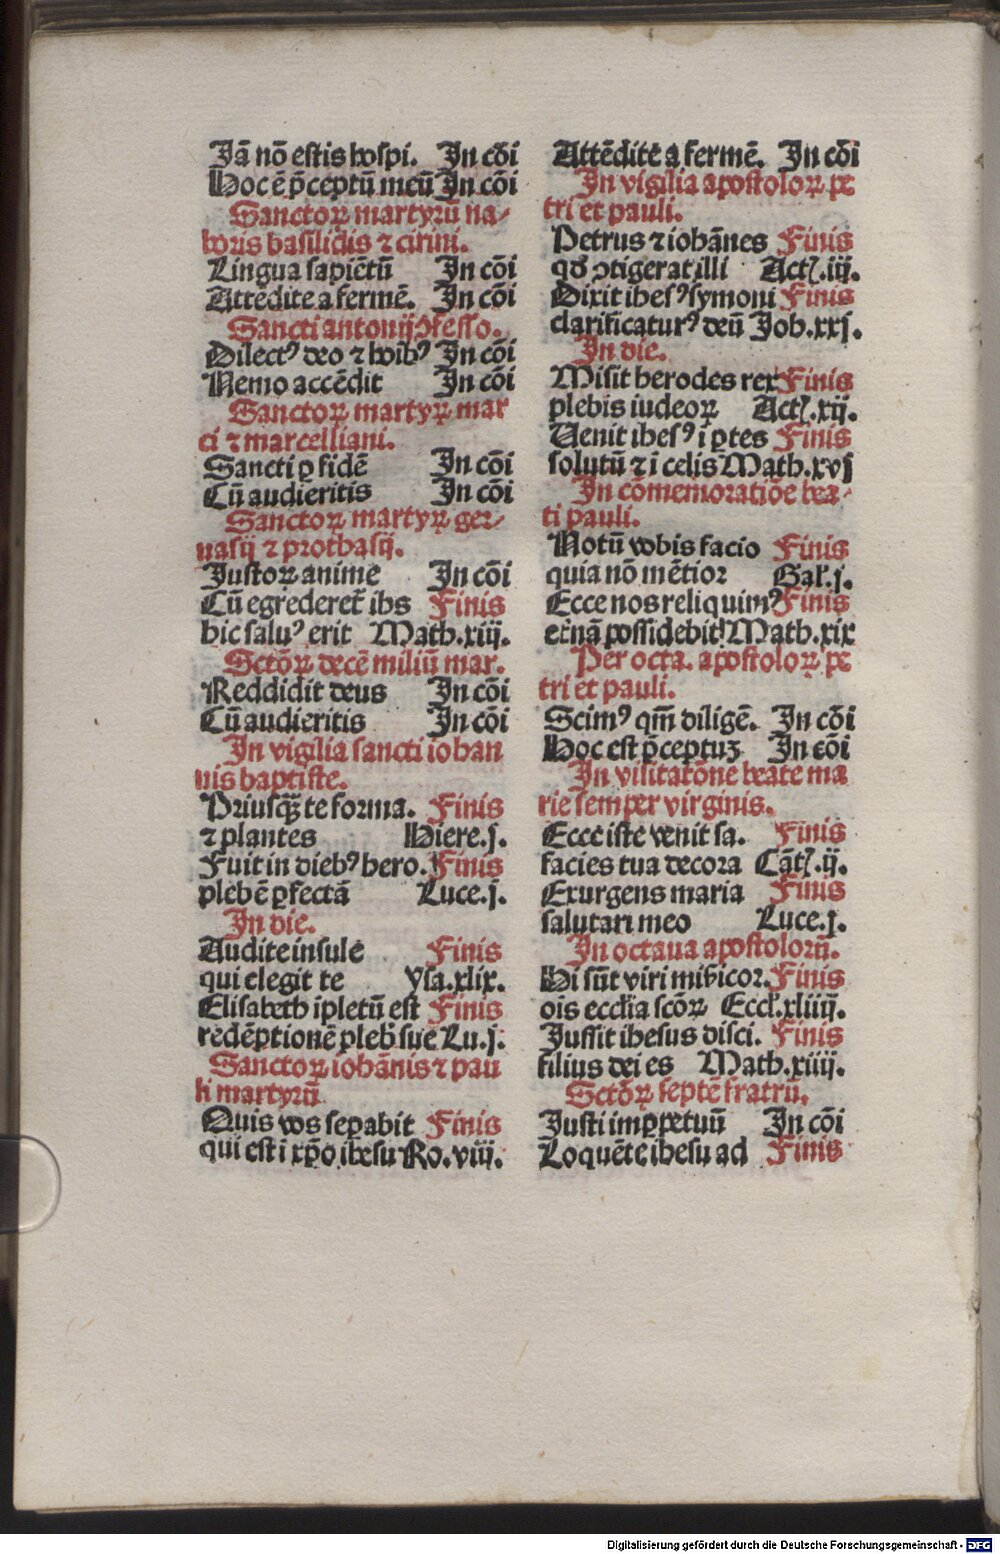 Jā nō estis hospi. In cōi
Hoc ē p̄ceptū meū In cōi
Sanctoꝝ martyrū na⸗
boris basilidis ⁊ cirini.
Lingua sapiētū In cōi
Attēdite a fermē. In cōi
Sancti antonij ꝯfesso.
Dilectꝰ deo ⁊ hoībꝰ In cōi
Nemo accēdit In cōi
Sanctoꝝ martyꝝ mar
ci ⁊ marcelliani.
Sancti ꝑ fidē In cōi
Cū audieritis In cōi
Sanctoꝝ martyꝝ ger⸗
uasij ⁊ prothasij.
Justoꝝ anime In cōi
Cū egrederet̄ ihs Finis
hic saluꝰ erit Math.xiij.
Sctōꝝ decē miliū mar.
Reddidit deus In cōi
Cū audieritis In cōi
In vigilia sancti iohan
nis baptiste.
Priusq̄ te forma. Finis
⁊ plantes Hiere.j.
Fuit in diebꝰ hero. Finis
plebē ꝑfectā Luce.j.
In die.
Audite insule Finis
qui elegit te Ysa.xlix.
Elisabeth īpletū est Finis
redēptionē pleb̄ sue Lu.j.
Sanctoꝝ iohānis ⁊ pau
li martyrū
Quis vos sepabit Finis
qui est ī xp̄o ihesu Ro.viij.
Attēdite a fermē. In cōi
In vigilia apostoloꝝ pe
tri et pauli.
Petrus ⁊ iohānes Finis
qd̄ ꝯtigerat illi Actꝭ.iij.
Dixit ihesꝰ symoni Finis
clarificaturꝰ deū Joh.xxj.
In die.
Misit herodes rex Finis
plebis iudeoꝝ Actꝭ.xij.
Uenit ihesꝰ ī ꝑtes Finis
solutū ⁊ ī celis Math.xvj
In cōmemoratiōe bea⸗
ti pauli.
Notū vobis facio Finis
quia nō mētior Gal̓.j.
Ecce nos reliquimꝰ Finis
et̓nā possidebit̓ Math.xix
Per octa. apostoloꝝ pe
tri et pauli.
Scimꝰ qm̄ diligē. In cōi
Hoc est p̄ceptuꝫ In cōi
In visitatōne beate ma
rie semper virginis.
Ecce iste venit sa. Finis
facies tua decora Cātꝭ.ij.
Exurgens maria Finis
salutari meo Luce.j.
In octaua apostolorū.
Hi sūt viri mis̓icor. Finis
oīs eccl̓ia scōꝝ Eccl̓.xliiij.
Jussit ihesus disci. Finis
filius dei es Math.xiiij.
Sctōꝝ septē fratrū.
Justi imꝑpetuū In cōi
Loquēte ihesu ad Finis
Digitalisierung gefördert durch die Deutsche Forschungsgemeinschaft - DFG